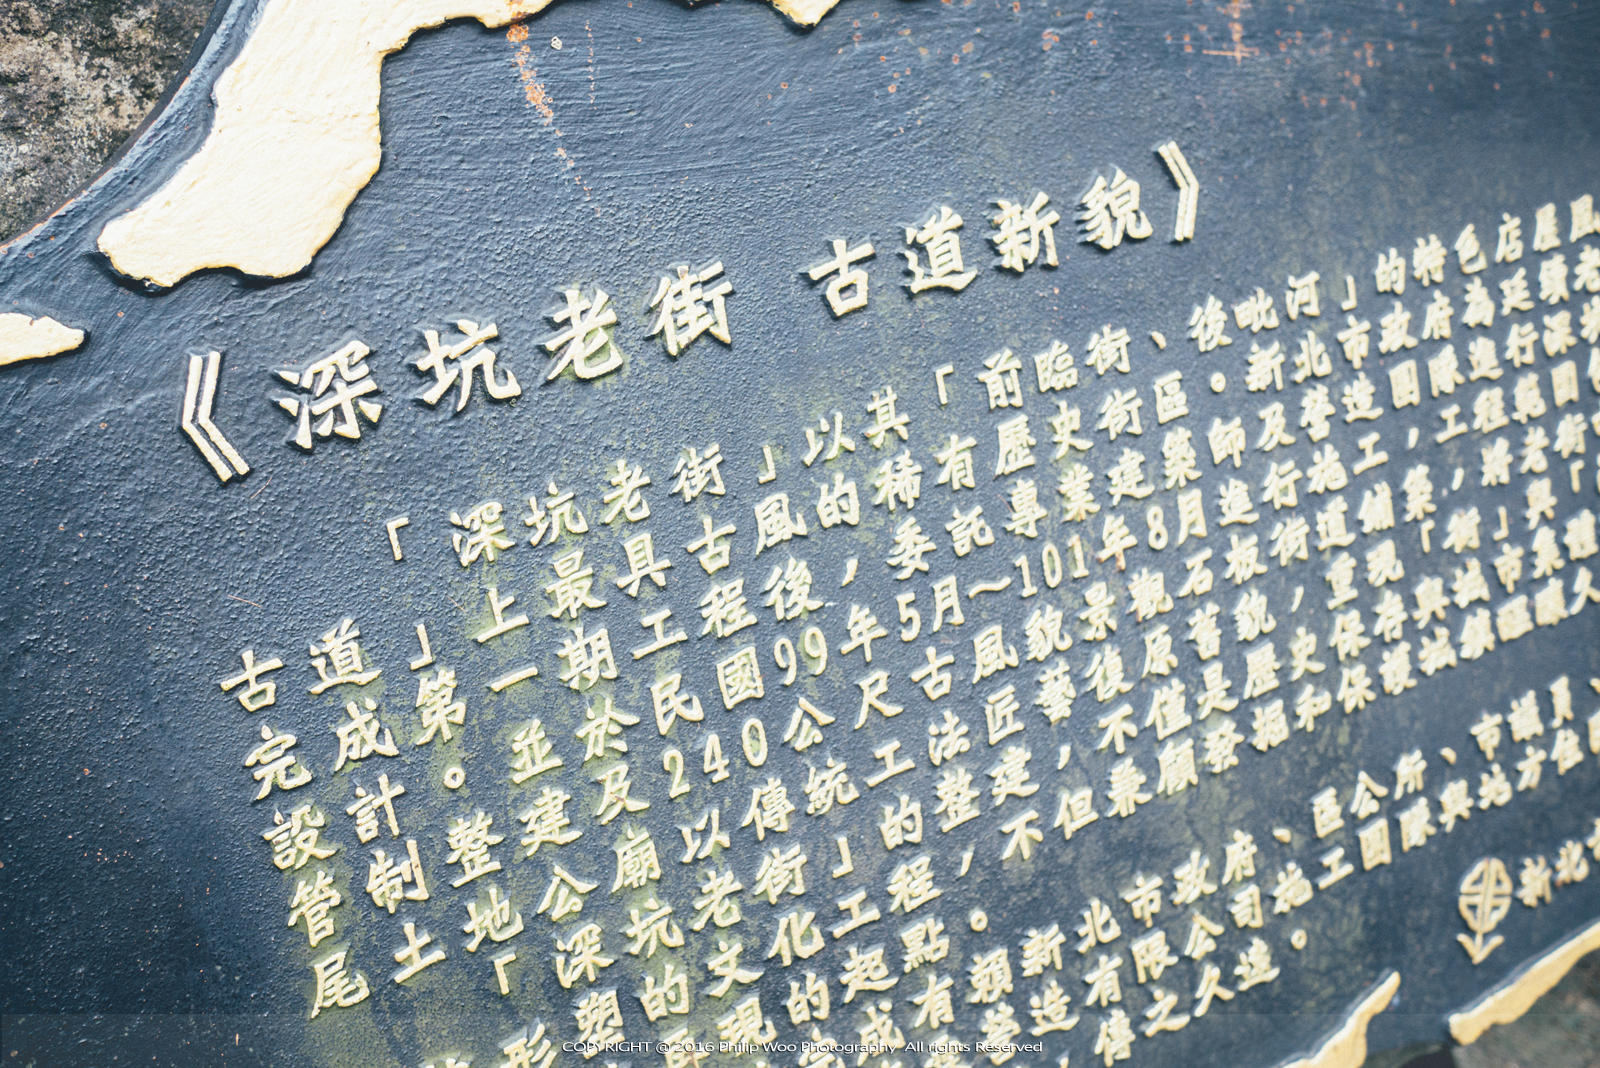 《深坑老街 古道新貌》
「深坑老街」以其「前臨街、後毗河」的特色店屋風
古道」上最具古風的稀有歷史街區。新北市政府為延續老
完成第一期工程後，委託專業建築師及營造團隊進行深坑
設計。並於民國99年5月～101年8月進行施工，工程範圍
管制整建及240公尺古風貌景觀石板街道舖築，將老街
尾土地公廟以傳統工法匠藝復原舊貌，重現「街」與「
「深坑老街」的整建，不僅是歷史保存與城市集體
形塑的文化工程，不但兼顧發掘和保護城鎮
現的起點。
成有賴新北市政府、區公所、市議員、
營造有限公司施工團隊與地方住
，傳之久遠。
新北
COPYRIGHT @ 2016 Philip Woo Photography All rights Reserved